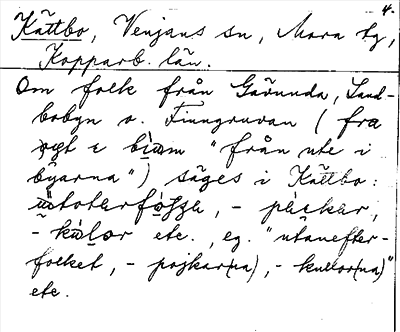 4.
Kättbo, Venjans sn, Mora tg,
Kopparb. län.
Om folk från Gävunda, Land-
bobyn o. Finngruvan (fra
i "från ute i
byarna") säges i Kättbo:
- påskar,
- etc., eg. "utanefter-
folket, - pojkar(na), - kullor(na)"
etc.